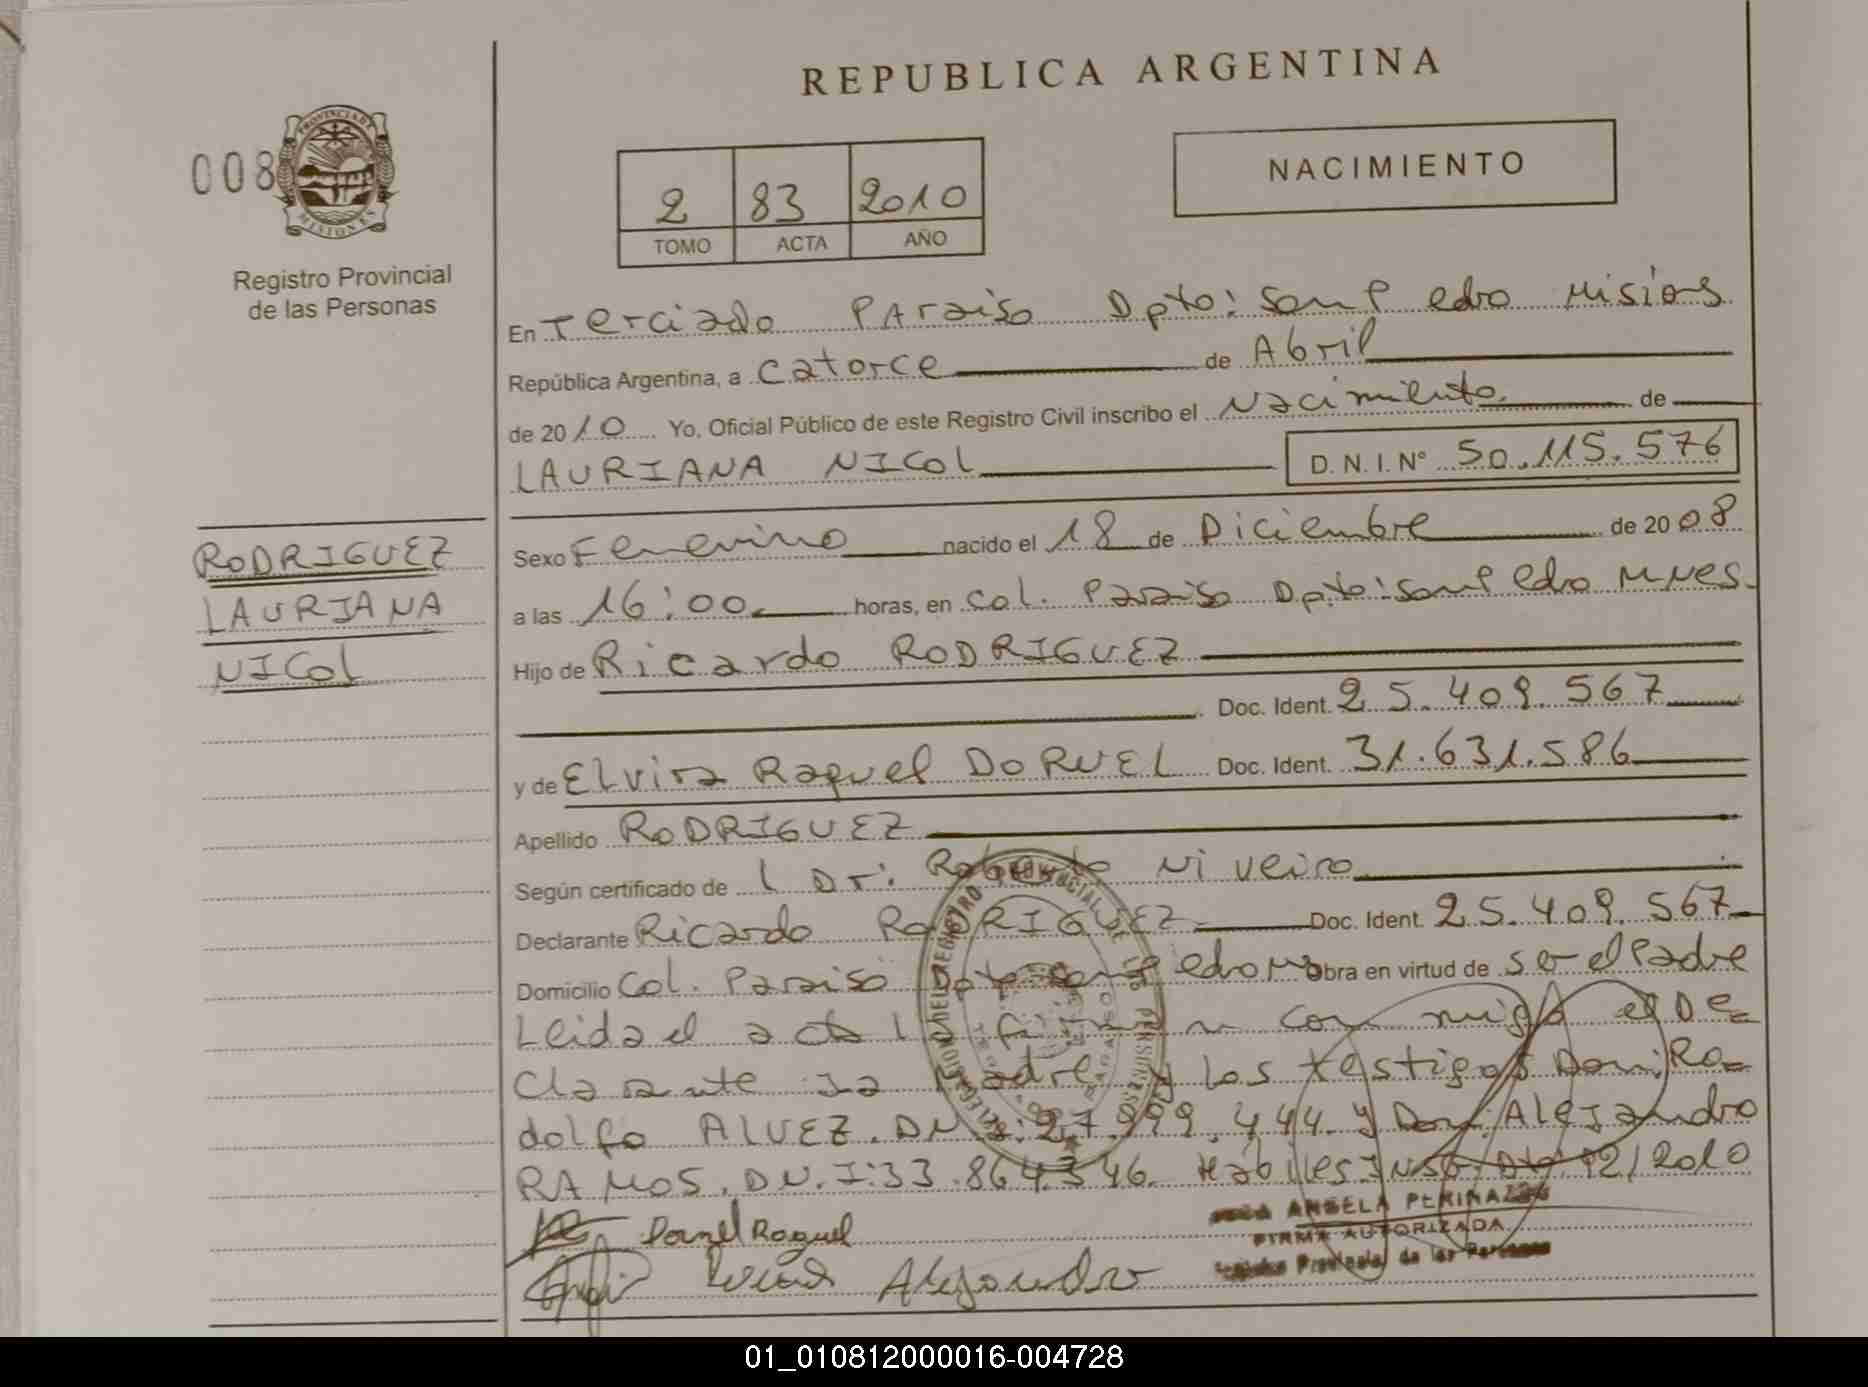 REPUBLICA ARGENTINA
008
PROVINCIA DE
MISIONES
Registro Provincial
de las Personas
2 83 2010
TOMO ACTA AÑO
NACIMIENTO
En Terciado Paraiso Dpto: San Pedro Misions
República Argentina, a catorce de Abril
de 2010 Yo, Oficial Público de este Registro Civil inscribo el Nacimiento de
LAURIANA NICOL D.N.I. Nº 50.115.576
RODRIGUEZ
LAURIANA
NICOL
Sexo Femenino nacido el 18 de Diciembre de 2008
a las 16:00 horas, en Col. Paraiso Dpto: San Pedro Mnes.
Hijo de Ricardo RODRIGUEZ
Doc. Ident. 25.409.567
y de Elvira Raquel Doc. Ident. 31.631.586
Apellido RODRIGUEZ
Según certificado de l Dr: Roberto Niveiro
Declarante Ricardo RODRIGUEZ Doc. Ident. 25.409.567
Domicilio Col. Paraiso Dpto San Pedro Obra en virtud de ser el Padre
Leida el acta la firman con migo el De=
clarante la Madre y los testigos Don: Ro=
dolfo ALVEZ. DNI: 27.999.444 y Don: Alejandro
RAMOS. D.N.I: 33.864.346. Habiles 2/2010
Raquel
Alejandro
ANGELA
FIRMA AUTORIZADA
Provincial de las Personas
01_010812000016-004728